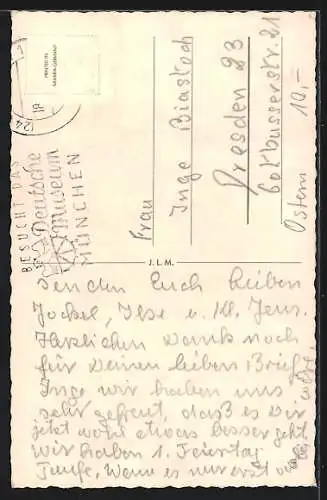 BESUCHT DAS
Deutsche
Museum
MÜNCHEN
24
18
Frau
Inge Biastoch
Dresden 23
Cottbusserstr. 21
Ostern
10,-
J.L.M.
senden Euch lieben
Jockel, Ilse u. Kl. Jens.
Herzlichen Dank noch
für Deinen lieben Brief.
Inge wir haben uns
sehr gefreut, daß es Dir
jetzt wohl etwas besser geht
Wir haben 1. Feiertag
Taufe, Wenn es nur erst